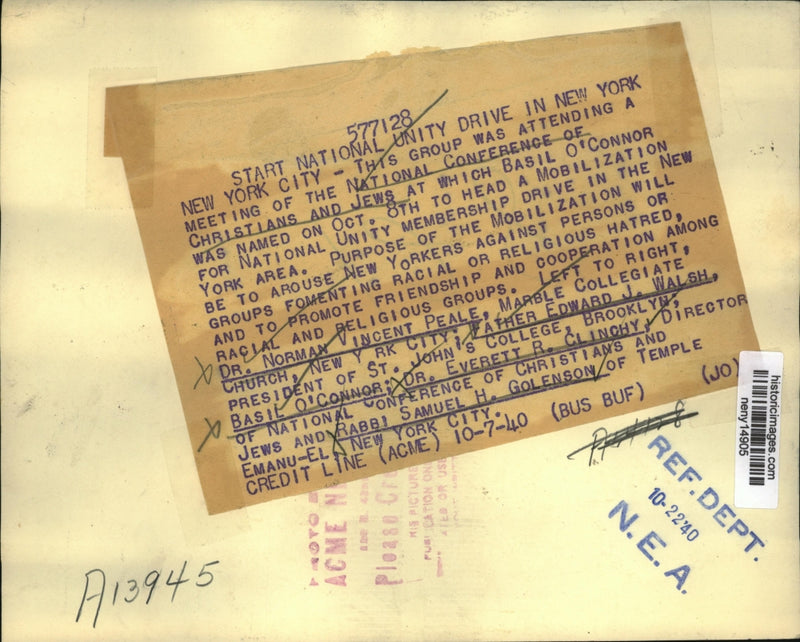 577128
START NATIONAL UNITY DRIVE IN NEW YORK
NEW YORK CITY - THIS GROUP WAS ATTENDING A
MEETING OF THE NATIONAL CONFERENCE OF
CHRISTIANS AND JEWS AT WHICH BASIL O'CONNOR
WAS NAMED ON OCT. 8TH TO HEAD A MOBILIZATION
FOR NATIONAL UNITY MEMBERSHIP DRIVE IN THE NEW
YORK AREA. PURPOSE OF THE MOBILIZATION WILL
BE TO AROUSE NEW YORKERS AGAINST PERSONS OR
GROUPS FOMENTING RACIAL OR RELIGIOUS HATRED,
AND TO PROMOTE FRIENDSHIP AND COOPERATION AMONG
RACIAL AND RELIGIOUS GROUPS. LEFT TO RIGHT,
DR. NORMAN VINCENT PEALE, MARBLE COLLEGIATE
CHURCH, NEW Y RK CITY; FATHER EDWARD J. WALSH,
PRESIDENT OF ST. JOHN'S COLLEGE, BROOKLYN;
BASIL O'CONNOR; DR. EVERETT R. CLINCHY, DIRECTOR
OF NATIONAL CONFERENCE OF CHRISTIANS AND
JEWS AND RABBI SAMUEL H. GOLENSON OF TEMPLE
EMANU-EL, NEW YORK CITY.
CREDIT LINE (ACME) 10-7-40 (BUS BUF) (JO)
historicimages.com
neny14905
REF. DEPT.
10-22'40
N.E.A.
PHOTO
ACME
Please
HIS PICTURE
A13945